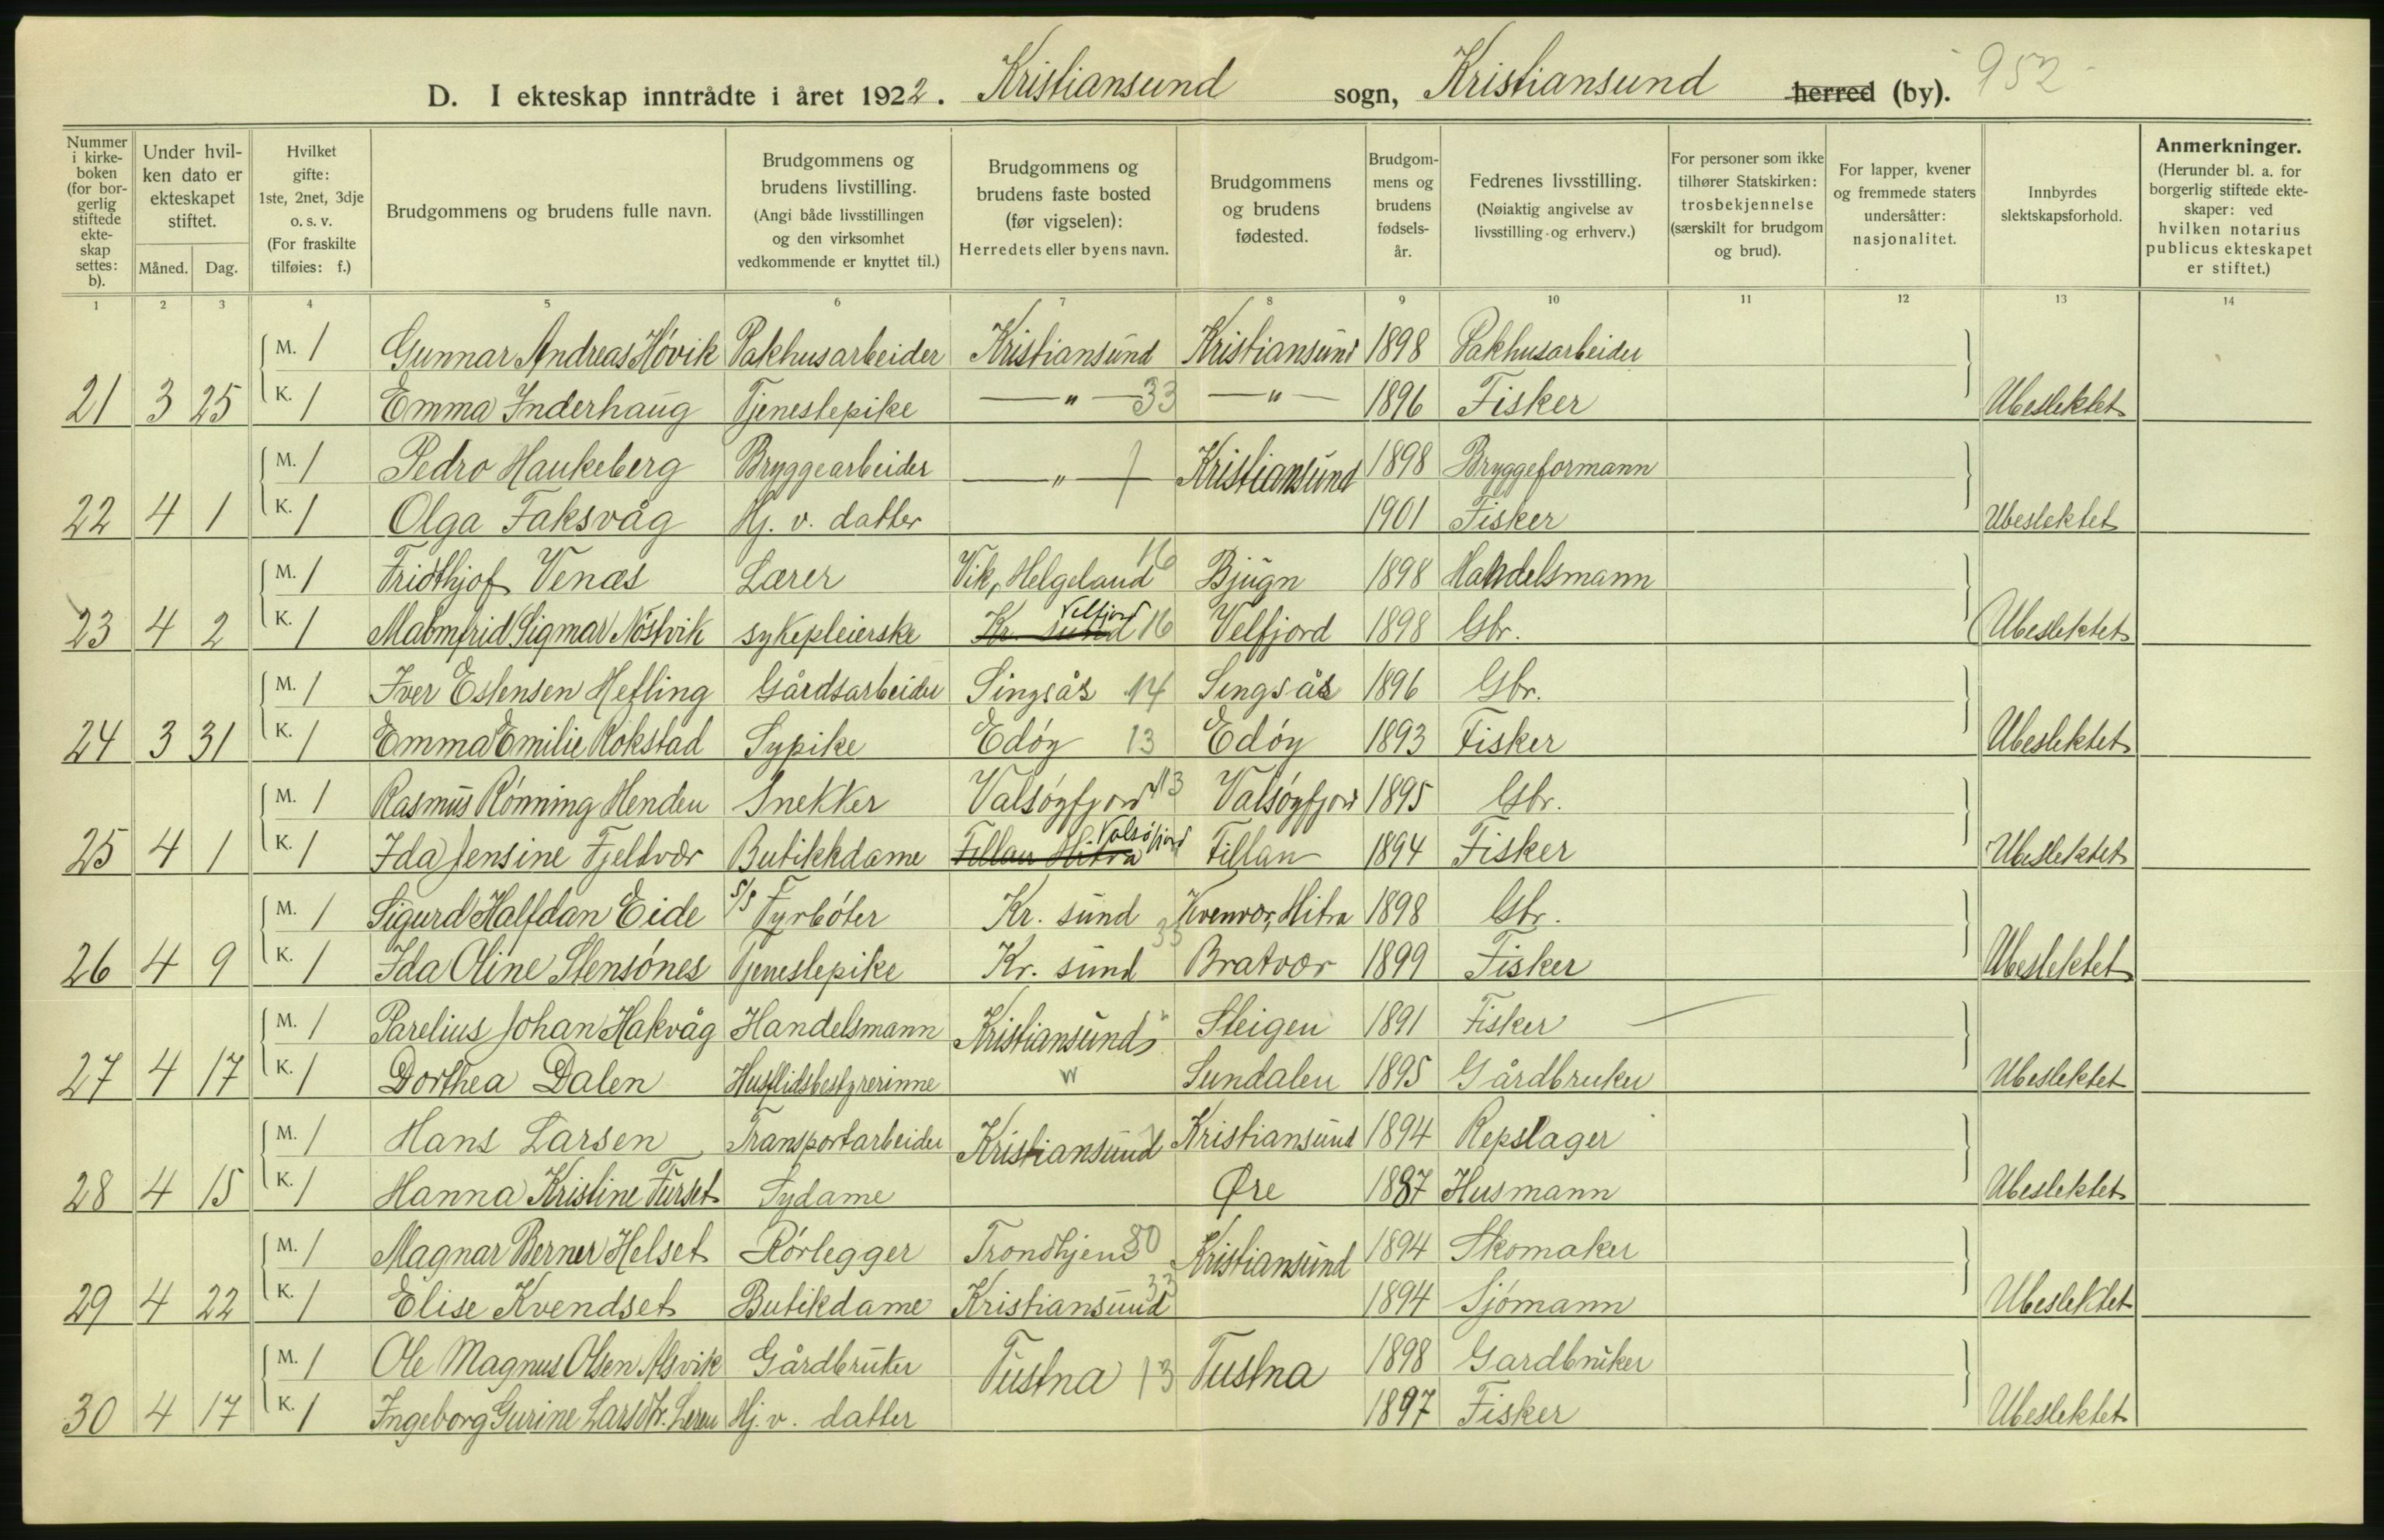 D. I ekteskap inntrådte i året 1922. Kristiansund sogn, Kristiansund herred (by). 952
Nummer i kirkeboken (for borgerlig stiftede ekteskap settes: b).
Under hvilken dato er ekteskapet stiftet.
Måned. Dag.
Hvilket gifte: 1ste, 2net, 3dje o. s. v. (For fraskilte tilføies: f.)
Brudgommens og brudens fulle navn.
Brudgommens og brudens livstilling. (Angi både livsstillingen og den virksomhet vedkommende er knyttet til.)
Brudgommens og brudens faste bosted (før vigselen): Herredets eller byens navn.
Brudgommens og brudens fødested.
Brudgommens og brudens fødselsår.
Fedrenes livsstilling. (Nøiaktig angivelse av livsstilling og erhverv.)
For personer som ikke tilhører Statskirken: trosbekjennelse (særskilt for brudgom og brud).
For lapper, kvener og fremmede staters undersåtter: nasjonalitet.
Innbyrdes slektskapsforhold.
Anmerkninger. (Herunder bl. a. for borgerlig stiftede ekteskaper: ved hvilken notarius publicus ekteskapet er stiftet.)
1 2 3 4 5 6 7 8 9 10 11 12 13 14
M. 1 Gunnar Andreas Høvik Pakhusarbeider Kristiansund Kristiansund 1898 Pakhusarbeider
21 3 25 K. 1 Emma Inderhaug Tjenestepike — " — 33 — " — 1896 Fisker Ubeslektet
M. 1 Pedro Haukeberg Bryggearbeider — " — Kristiansund 1898 Bryggeformann
22 4 1 K. 1 Olga Faksvåg Hj. v. datter 1901 Fisker Ubeslektet
M. 1 Fridthjof Venæs Lærer Vik, Helgeland 16 Bjugn 1898 Handelsmann
23 4 2 K. 1 Malmfrid Sigmar Nöstvik sykepleierske Kr. sund Velfjord 16 Velfjord 1898 Gbr. Ubeslektet
M. 1 Iver Estensen Hefling Gårdsarbeider Singsås 14 Singsås 1896 Gbr.
24 3 31 K. 1 Emma Emilie Rokstad Sypike Edöy 13 Edöy 1893 Fisker Ubeslektet
M. 1 Rasmus Rönning Henden Snekker Valsöyfjord 13 Valsöyfjord 1895 Gbr.
25 4 1 K. 1 Ida Jensine Fjeldvær Butikkdame Fillan Hitra Valsöfjord Fillan 1894 Fisker Ubeslektet
M. 1 Sigurd Halfdan Eide s/s Fyrböter Kr. sund Kvenvær, Hitra 1898 Gbr.
33
26 4 9 K. 1 Ida Oline Stensönes Tjenestepike Kr. sund Bratvær 1899 Fisker Ubeslektet
M. 1 Parelius Johan Hakvåg Handelsmann Kristiansund Steigen 1891 Fisker
27 4 17 K. 1 Dorthea Dalen Husflidsbestyrerinne " Sundalen 1895 Gårdbruker Ubeslektet
M. 1 Hans Larsen Transportarbeider Kristiansund Kristiansund 1894 Repslager
28 4 15 K. 1 Hanna Kristine Furset Sydame Øre 1887 Husmann Ubeslektet
M. 1 Magnar Berner Helset Rörlegger Trondhjem 80 Kristiansund 1894 Skomaker
29 4 22 K. 1 Elise Kvendset Butikdame Kristiansund 33 1894 Sjömann Ubeslektet
M. 1 Ole Magnus Olsen Alsvik Gårdbruker Tustna 13 Tustna 1898 Gardbruker
30 4 17 K. 1 Ingeborg Gurine Larsdtr. Leren Hj. v. datter 1897 Fisker Ubeslektet